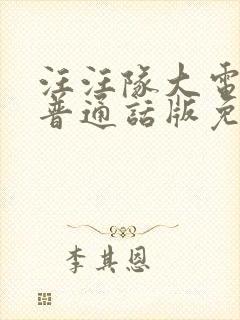 汪汪隊大電
普通話版免
李其恩